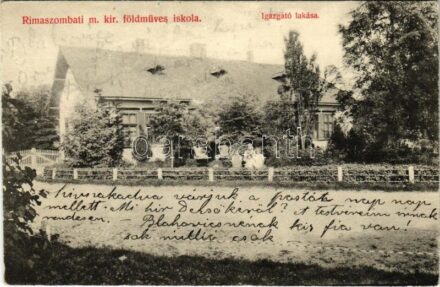 Rimaszombati m. kir. földmüves iskola.
Igazgató lakása.
szivszakadva várjuk a postát nap nap
mellett. Mi hir Delsőkéről? A testvéreim mind
rendesen. Blahovicsnénak kis fia van!
sok millió csók